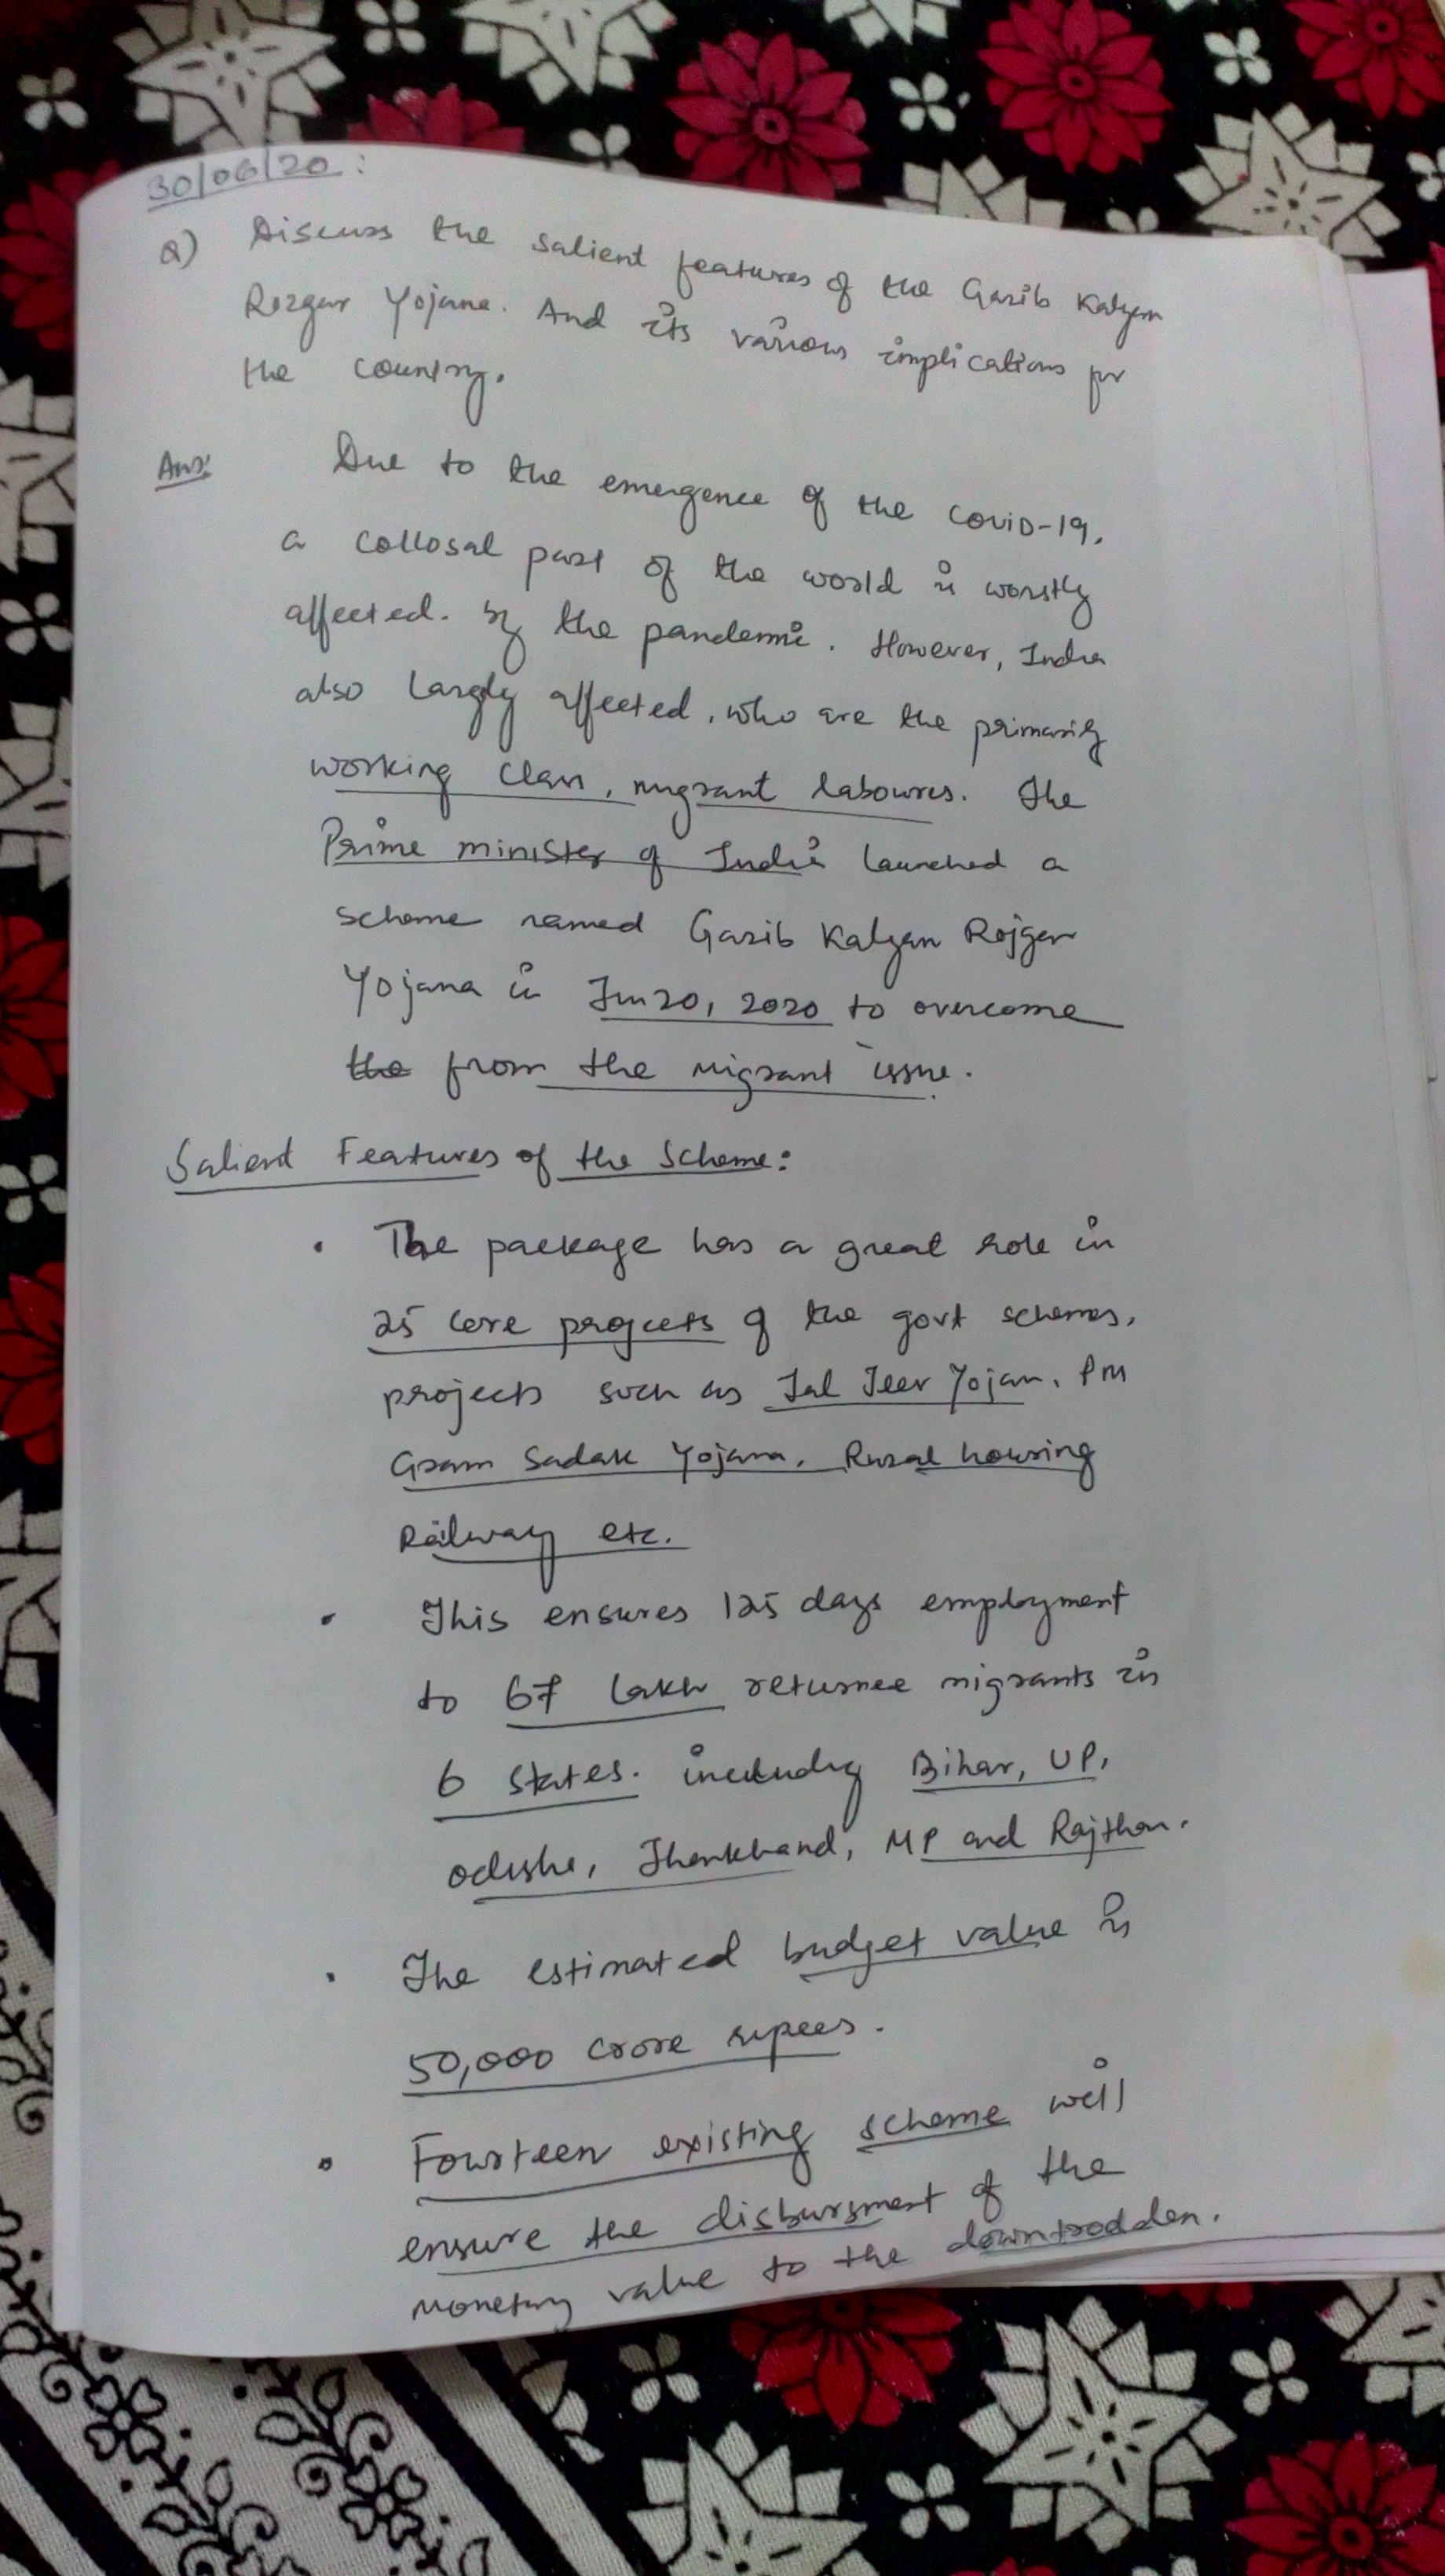 30/06/20:
Q) Discuss the salient features of the Garib Kalyan
Rozgar Yojana. And its various implications for
the country.
Ans: Due to the emergence of the COVID-19,
a collosal part of the world is worstly
affected. by the pandemic. However, India
also largly affected, who are the primarily
working class, migrant laboures. The
Prime minister of India launched a
scheme named Garib Kalyan Rojgar
Yojana in Jun 20, 2020 to overcome
the from the migrant issue.
Salient Features of the Scheme:
• The package has a great role in
25 core projects of the govt schemes,
projects such as Jal Jeev Yojan, PM
Gram Sadak Yojana, Rural housing
Railway etc.
• This ensures 125 days employment
to 67 lakh returnee migrants in
6 states. including Bihar, UP,
Odisha, Jharkhand, MP and Rajthan.
• The estimated budget value is
50,000 crore rupees.
• Fourteen existing scheme will
ensure the disbursment of the
monetary value to the downtrodden.